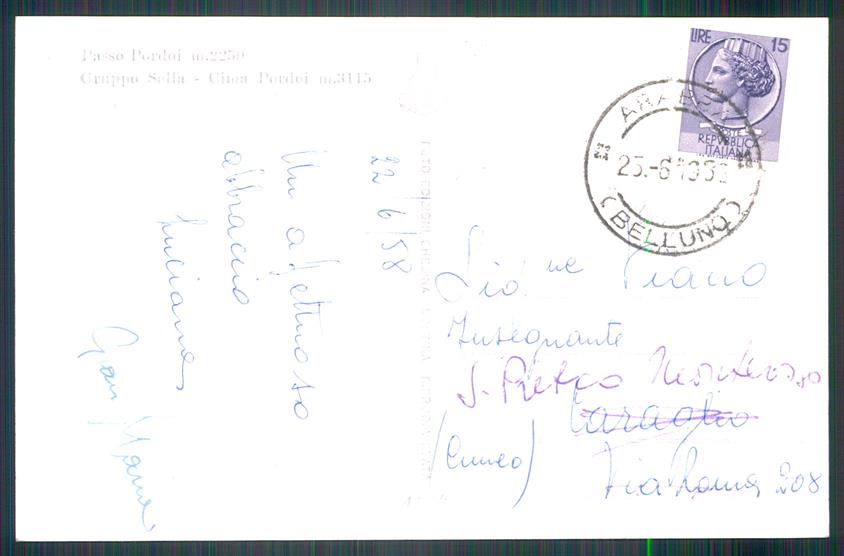 Passo Pordoi m.2250
Gruppo Sella - Cima Pordoi m.3115
22/6/58
Un affettuoso
abbraccio
Luciana
LIRE 15
POSTE
REPVBBLICA
ITALIANA
ARABBA
(BELLUNO)
Piano
Insegnante
S. Pietro Monterosso
Caraglio
(Cuneo)
Via Roma 208